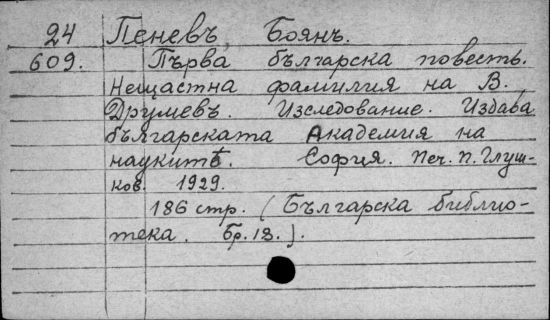 24 Пеневъ, Боянъ.
609. Първа българска повесть.
Нещастна фамилия на В.
Друмевъ. Изследование. Издава
българската Академия на
наукитѣ. София. Печ. П. Глуш-
ков. 1929.
186 стр. (Българска библио-
тека. Бр. 18.).